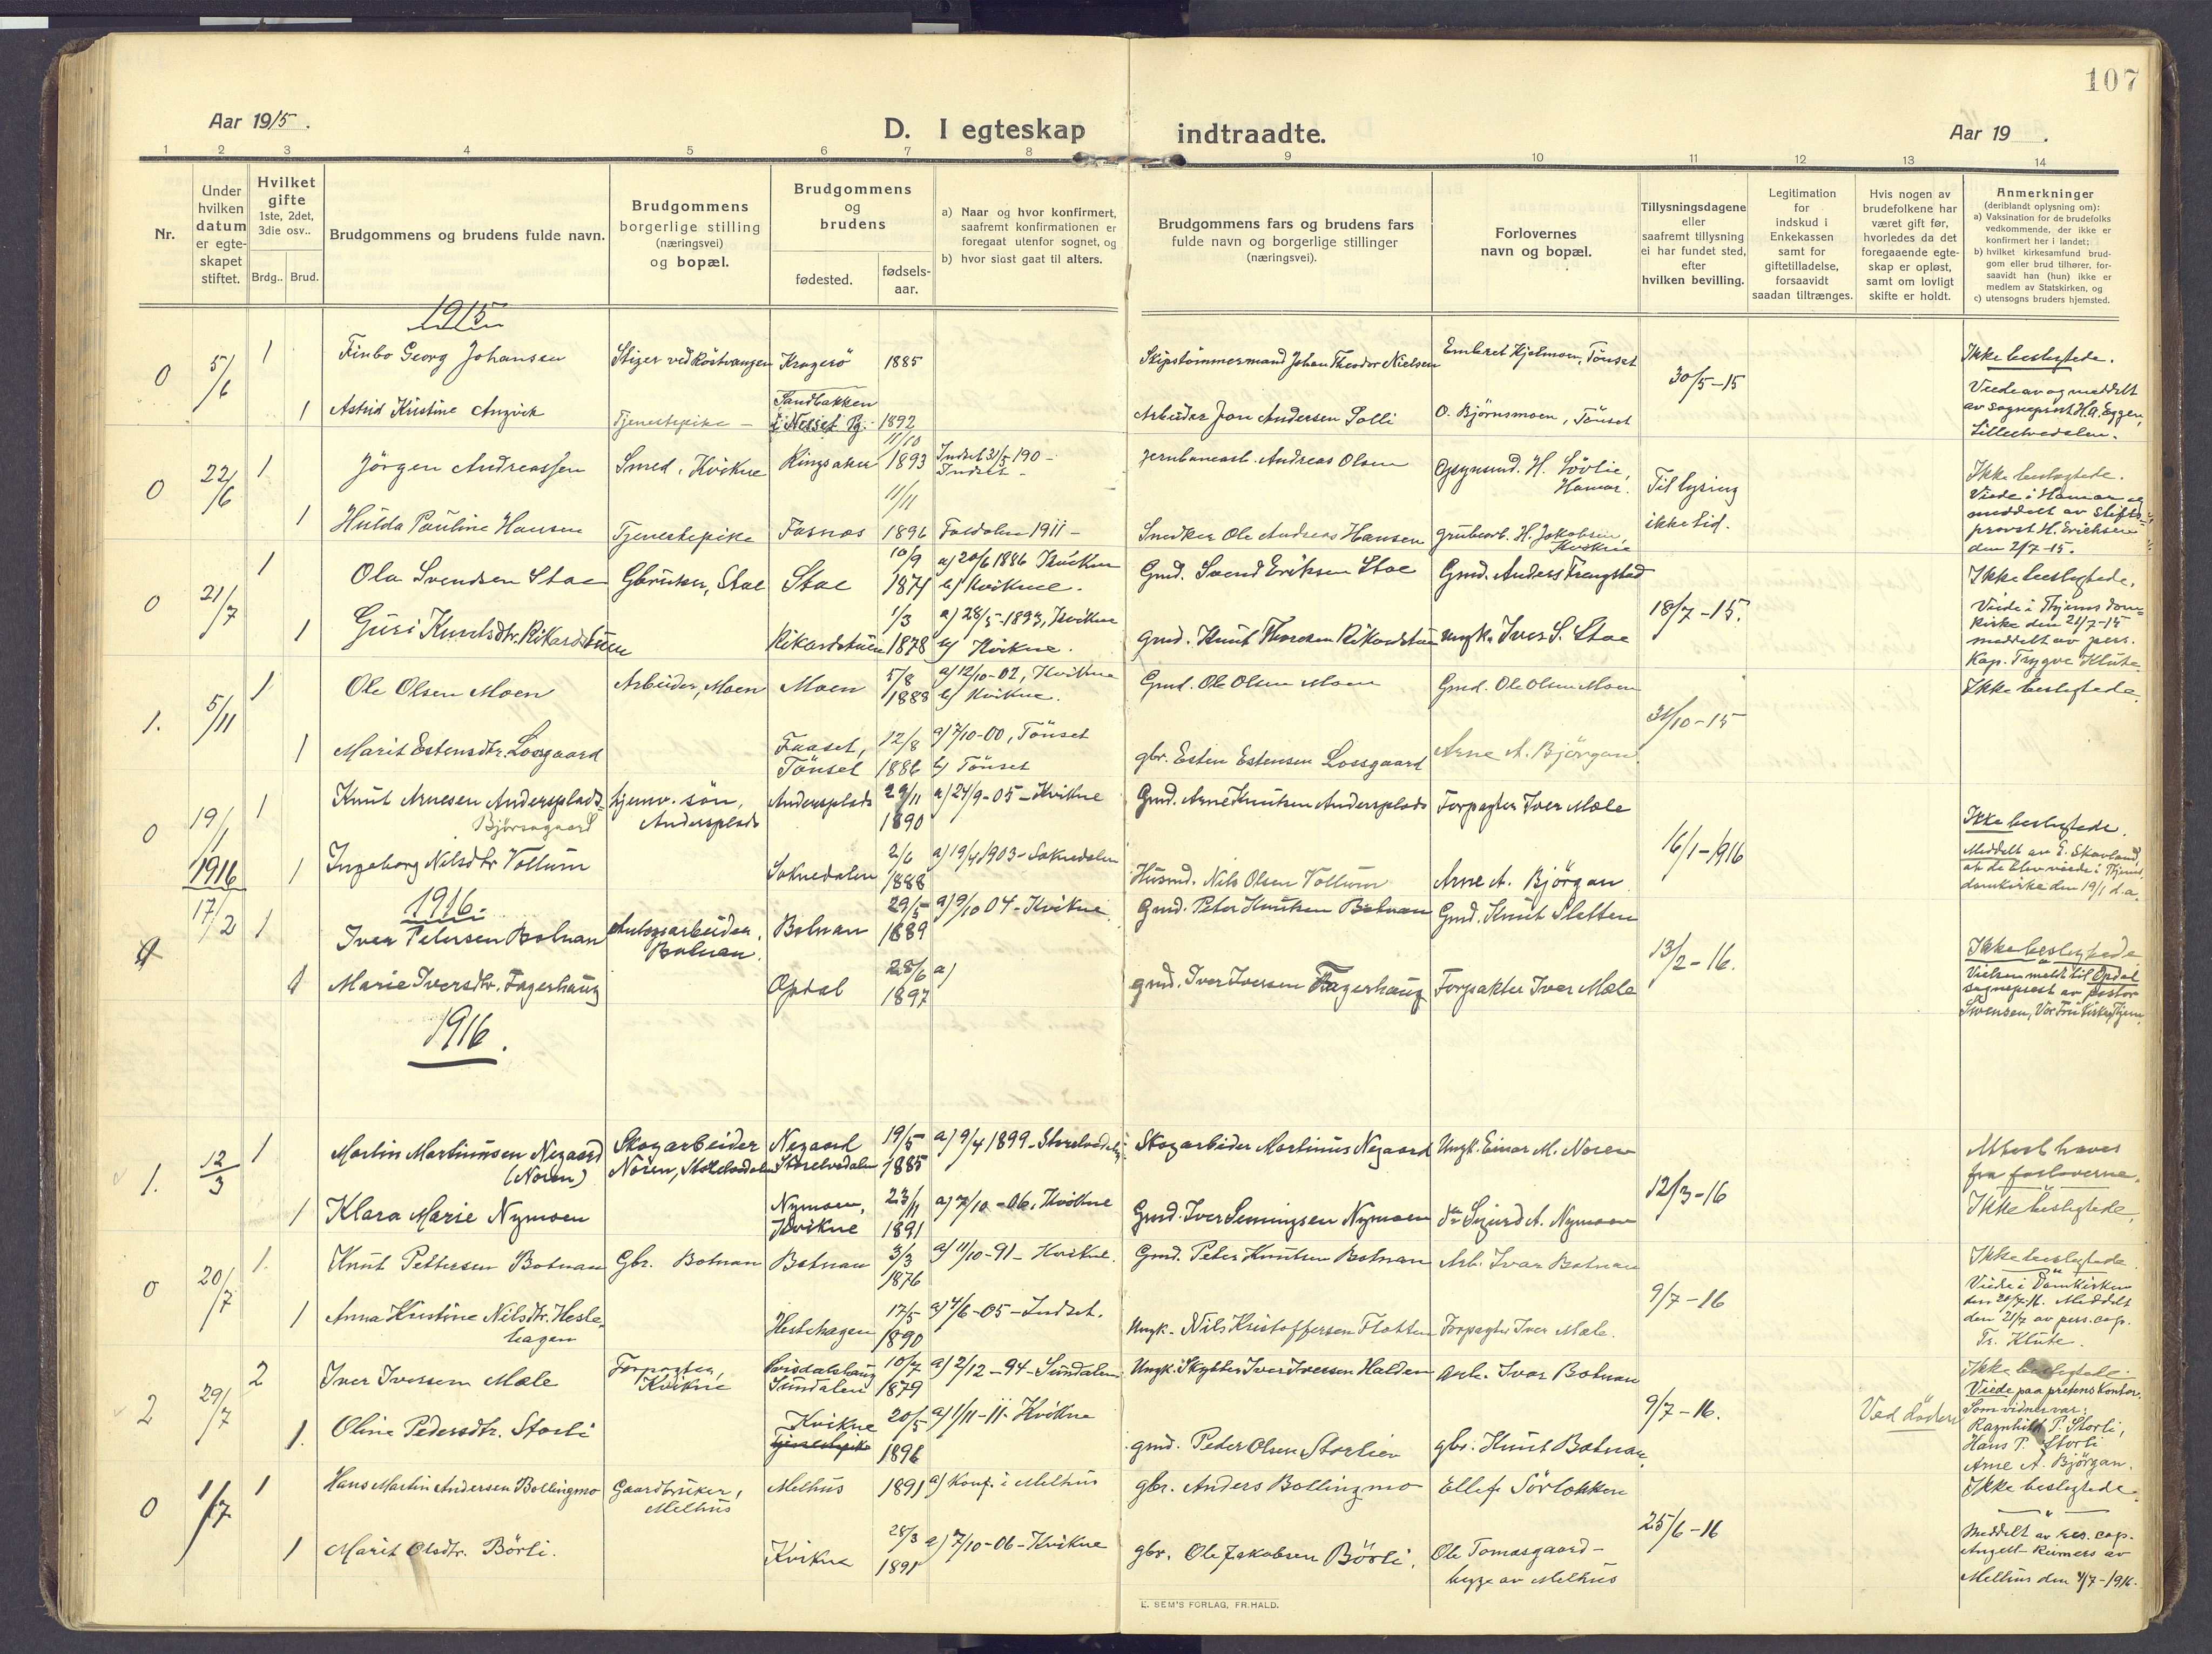 107
Aar 1915.
D. I egteskap indtraadte.
Aar 19 .
1 2 3 4 5 6 7 8 9 10 11 12 13 14
Nr.
Under hvilken datum er egte-skapet stiftet.
Hvilket gifte 1ste, 2det, 3die osv..
Brdg.. Brud.
Brudgommens og brudens fulde navn.
Brudgommens borgerlige stilling (næringsvei) og bopæl.
Brudgommens og brudens
fødested.
fødsels-aar.
a) Naar og hvor konfirmert, saafremt konfirmationen er foregaat utenfor sognet, og
b) hvor sidst gaat til alters.
Brudgommens fars og brudens fars fulde navn og borgerlige stillinger (næringsvei).
Forlovernes navn og bopæl.
Tillysningsdagene eller saafremt tillysning ei har fundet sted, efter hvilken bevilling.
Legitimation for indskud i Enkekassen samt for giftetilladelse, forsaavidt saadan tiltrænges.
Hvis nogen av brudefolkene har været gift før, hvorledes da det foregaaende egte-skap er opløst, samt om lovligt skifte er holdt.
Anmerkninger (deriblandt oplysning om):
a) Vaksination for de brudefolks vedkommende, der ikke er konfirmert her i landet;
b) hvilket kirkesamfund brud-gom eller brud tilhører, for-saavidt han (hun) ikke er medlem av Statskirken, og
c) utensogns bruders hjemsted.
1915
0 5/6 1 Finbo Georg Johansen Stiger ved Röstvangen Kragerö 1885 Skipstömmermand Johan Theodor Nielsen Embret Hjelmen, Tönset 30/5-15 Ikke beslegtede.
1 Astrid Kristine Angvik Tjenestepike - Sandbakken i Nesset Pg. 1892 Arbeider Jon Andersen Solli O. Björnsmoen, Tönset
Viede av og meddelt
av sogneprest H. A. Eggen,
Lilleelvedalen.
0 22/6 1 Jörgen Andreassen Smed, Kvikne Ringsaker 11/10 1893 Indset 31/5 190- Indset - Jernbanearb. Andreas Olsen H. Lövlie, Hamar. Tillysning ikke tid. Ikke beslegtede.
1 Hulda Pauline Hansen Tjenestepike Fosnæs 11/11 1896 Foldalen 1911 - Snedker Ole Andreas Hansen Grubearb. H. Jakobsen, Kvikne
Viede i Hamar og
meddelt av Stifts-
provst H. Erichsen
den 2/7-15.
0 21/7 1 Ola Svendsen Stae Gbruker, Stae Stae 10/9 1871 a) 20/6 1886 Kvikne b) Kvikne. Gmd. Svend Eriksen Stae Gmd. Anders Frengstad 18/7-15. Ikke beslegtede.
1 Guri Knudsdtr. Rikardstuen Rikardstuen 1/3 1878 a) 28/5-1893, Kvikne b) Kvikne. Gmd. Knut Thoresen Rikardstuen Ungk. Iver S. Stae
Viede i Thjems dom-
kirke den 21/7-15
meddelt av pers.
Kap. Trygve Klüte.
1. 5/11 1 Ole Olsen Moen Arbeider, Moen Moen 5/8 1888 a) 12/10-02, Kvikne b) Kvikne. Gmd. Ole Olsen Moen Gmd. Ole Olsen Moen 31/10-15 Ikke beslegtede.
1 Marit Estensdtr. Lossgaard Faaset, Tönset 12/8 1886 a) 7/10-00, Tönset b) Tönset gbr. Esten Estensen Lossgaard Arne A. Björgan.
0 19/1 1916 1 Knut Arnesen Andersplads Björsagaard hjemv. sön, Andersplads Andersplads 29/11 1890 a) 24/9-05 - Kvikne Gmd. Arne Knutsen Andersplads Forpagter Iver Mæle 16/1-1916 Ikke beslegtede.
1 Ingeborg Nilsdtr Vollum Soknedalen 2/6 1888 a) 19/4 1903 - Soknedalen Husmd. Nils Olsen Vollum Arne A. Björgan
Meddelt av E. Skavland,
at de blev viede i Thjems
domkirke den 19/1 d.a.
1916.
17/2 1 Iver Petersen Botnan Anlægsarbeider, Botnan. Botnan 29/5 1889 a) 9/10 04 - Kvikne Gmd. Peter Knutsen Botnan Gmd. Knut Sletten 13/2-16. Ikke beslegtede
1 Marie Iversdtr. Fagerhaug Opdal 28/6 1897 a) gmd. Iver Iversen Fagerhaug Forpakter Iver Mæle
Vielsen meldt til Opdal
sogneprest av pastor
Svensen, Vor Frue kirke, Thjem.
1916.
1. 12/3 1 Martin Martinusen Negaard (Noren) Skogarbeider Noren, Storelvedalen Negaard Storelvedalen 19/5 1885 a) 9/4 1899 - Storelvedalen Skogarbeider Martinus Negaard Ungk. Einar M. Noren 12/3-16 Attest haves
fra forloverne.
1 Klara Marie Nymoen Nymoen, Kvikne 23/11 1891 a) 7/10-06, Kvikne Gmd. Iver Simingsen Nymoen do Sigurd A. Nymoen Ikke beslegtede.
0 20/7 1. Knut Pettersen Botnan Gbr. Botnan Botnan 3/3 1876 a) 11/10-91 - Kvikne. Gmd. Peter Knutsen Botnan Arb. Ivar Botnan 9/7-16 Ikke beslegtede.
1 Anna Kristine Nilsdtr. Hesle-hagen Heslehagen 17/5 1890 a) 4/6-05 - Indset. Ungk. Nils Kristoffersen Flotten Forpagter Iver Mæle.
Viede i Domkirken
den 20/7-16. Meddelt
den 21/7 av pers. cap.
Tr. Klüte.
2 29/7 2 Iver Iversen Mæle Forpagter, Kvikne Sundalen 10/7 1879 a) 2/12-94 - Sundalen Ungk. Skytter Iver Iversen Halden Arb. Ivar Botnan 9/7-16. Ved döden Ikke beslegtede.
1. Oline Pedersdtr. Storli Kvikne Tjenestepike 20/5 1896 a) 1/11-11 - Kvikne gmd. Peder Olsen Storlien gbr. Knut Botnan
Viede paa prestens kontor.
Som vidner var:
Ragnhild P. Storli,
Hans P. Storli
Arne A. Björgan.
0 1/7 1 Hans Martin Andersen Bollingmo Gaardbruker, Melhus Melhus 1891 a) Konf. i Melhus gbr. Anders Bollingmo Ellef Sörlökken 25/6-16 Ikke beslegtede.
1 Marit Olsdtr. Börli. Kvikne 28/3 1891 a) 7/10-06 - Kvikne gbr. Ole Jakobsen Börli. Ole Tomasgaard - begge av Melhus
Meddelt av res. cap.
Angell-Reimers av
Melhus den 4/7-1916.
E. SEM'S FORLAG, FR.HALD.